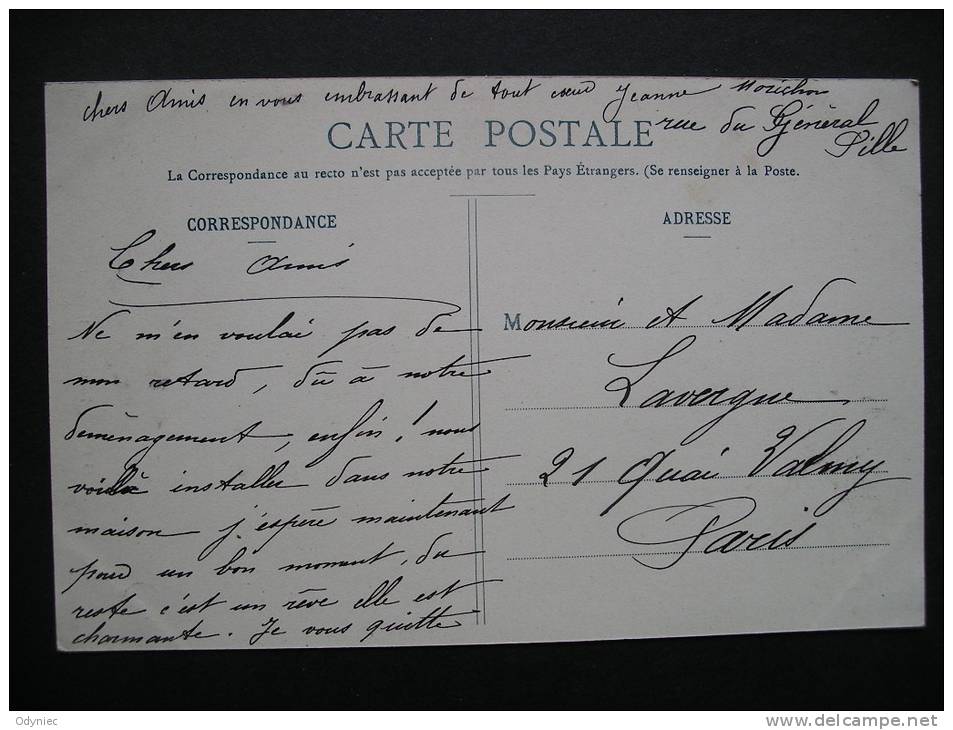 chers Amis en vous embrassant de tout cœur Jeanne
rue du Général
CARTE POSTALE
La Correspondance au recto n'est pas acceptée par tous les Pays Étrangers. (Se renseigner à la Poste.
CORRESPONDANCE
Chers Amis
Ne m'en voulai pas de
mon retard, dû à notre
déménagement, enfin! nous
voilà installer dans notre
maison j'espère maintenant
pour un bon moment, du
reste c'est un rêve elle est
charmante. Je vous quitte
ADRESSE
Monsieur et Madame
Lavergne
21 Quai Valmy
Paris
Odyniec
www.delcampe.net